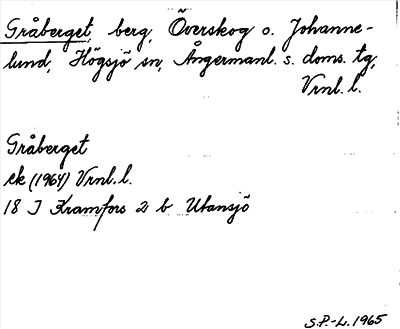 Gråberget, berg, Överskog o. Johanne-
lund, Högsjö sn, Ångermanl. s. doms. tg,
Vrnl. l.
Gråberget
ek (1964) Vrnl. l.
18 J Kramfors 2 b Utansjö
S.P.-L. 1965